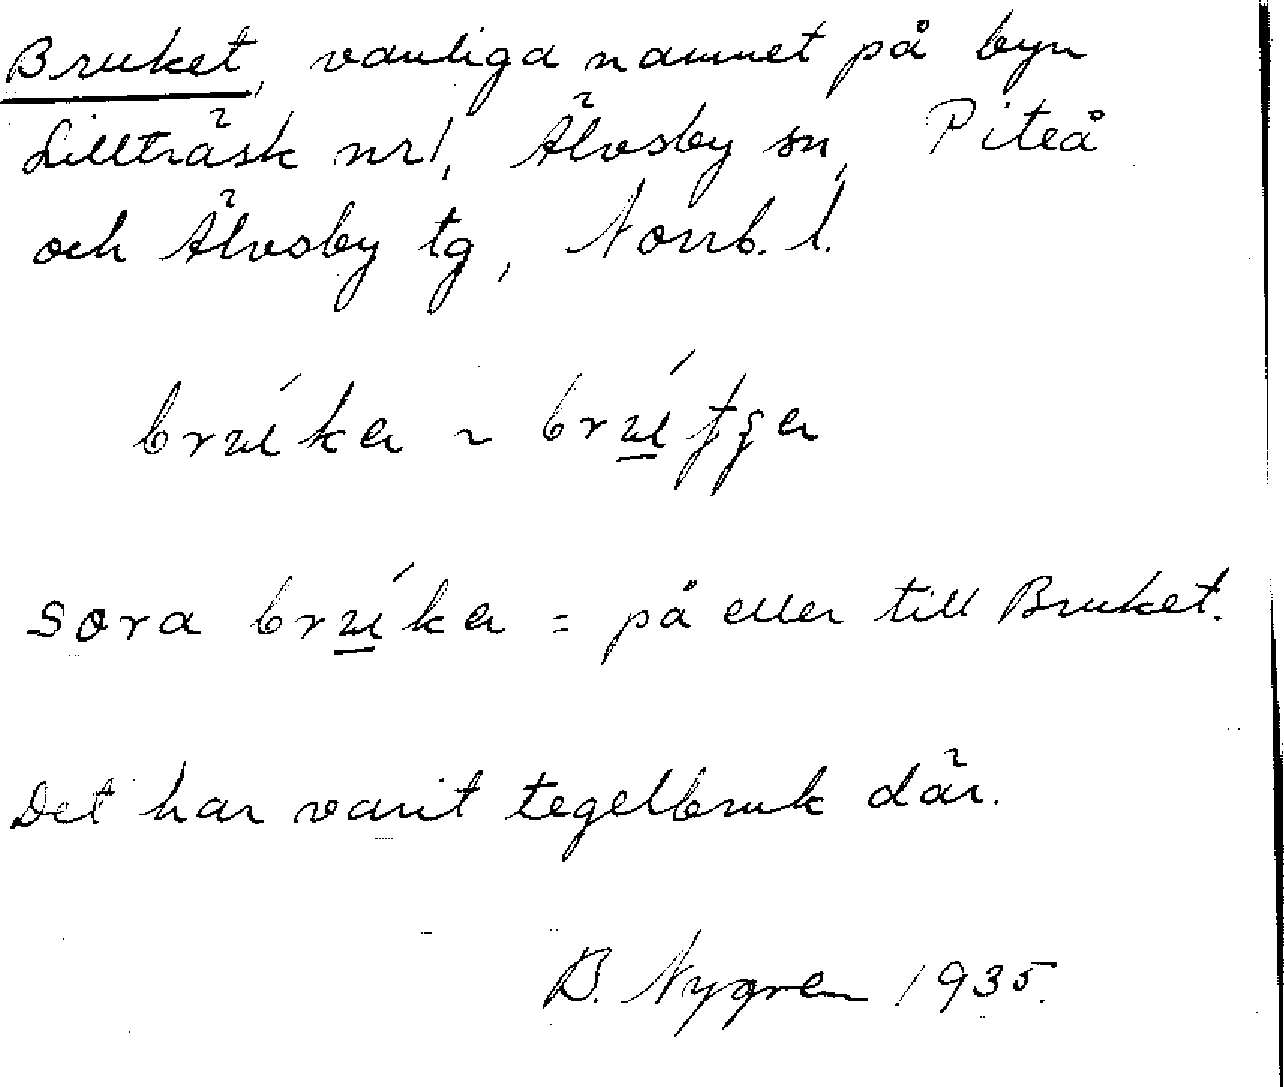 Bruket, vanliga namnet på byn
Lillträsk nr 1, Älvsby sn, Piteå
och Älvsby tg, Norrb. l.
sora = på eller till Bruket.
Det har varit tegelbruk där.
B. Nygren 1935.